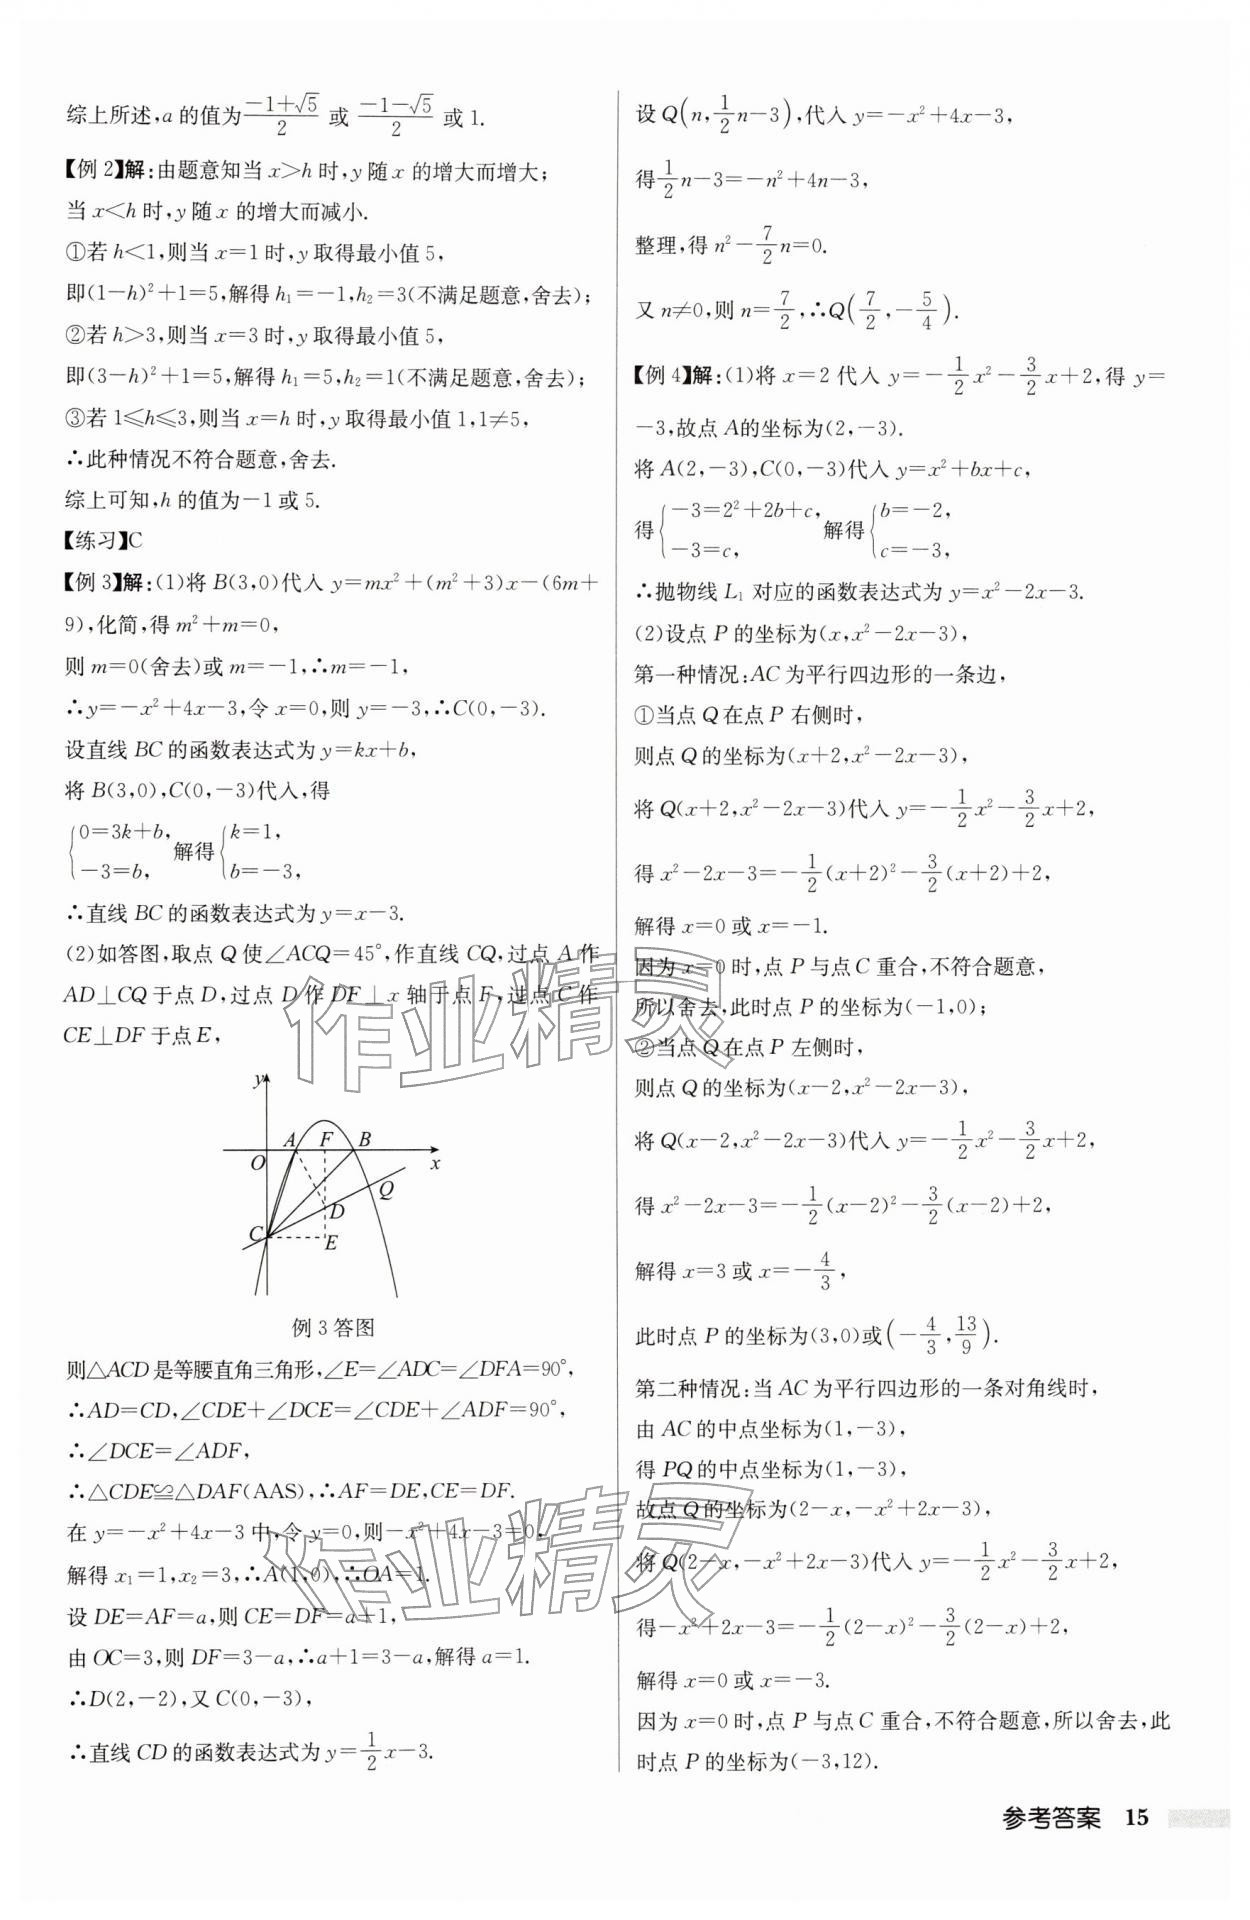 综上所述,a 的值为$\frac{-1+\sqrt{5}}{2}$ 或 $\frac{-1-\sqrt{5}}{2}$ 或 1.
【例 2】解:由题意知当 x>h 时,y 随 x 的增大而增大;
当 x<h 时,y 随 x 的增大而减小.
①若 h<1,则当 x=1 时,y 取得最小值 5,
即(1-h)²+1=5,解得 h₁=-1,h₂=3(不满足题意,舍去);
②若 h>3,则当 x=3 时,y 取得最小值 5,
即(3-h)²+1=5,解得 h₁=5,h₂=1(不满足题意,舍去);
③若 1≤h≤3,则当 x=h 时,y 取得最小值 1,1≠5,
∴此种情况不符合题意,舍去.
综上可知,h 的值为-1 或 5.
【练习】C
【例 3】解:(1)将 B(3,0)代入 y=mx²+(m²+3)x-(6m+
9),化简,得 m²+m=0,
则 m=0(舍去)或 m=-1,∴m=-1,
∴y=-x²+4x-3,令 x=0,则 y=-3,∴C(0,-3).
设直线 BC 的函数表达式为 y=kx+b,
将 B(3,0),C(0,-3)代入,得
{0=3k+b, -3=b, 解得{k=1, b=-3,
∴直线 BC 的函数表达式为 y=x-3.
(2)如答图,取点 Q 使∠ACQ=45°,作直线 CQ,过点 A 作
AD⊥CQ 于点 D,过点 D 作 DF⊥x 轴于点 F,过点 C 作
CE⊥DF 于点 E,
y
A F B
O x
Q
D
C
E
例 3 答图
则△ACD 是等腰直角三角形,∠E=∠ADC=∠DFA=90°,
∴AD=CD,∠CDE+∠DCE=∠CDE+∠ADF=90°,
∴∠DCE=∠ADF,
∴△CDE≌△DAF(AAS),∴AF=DE,CE=DF.
在 y=-x²+4x-3 中,令 y=0,则-x²+4x-3=0,
解得 x₁=1,x₂=3,∴A(1,0),∴OA=1.
设 DE=AF=a,则 CE=DF=a+1,
由 OC=3,则 DF=3-a,∴a+1=3-a,解得 a=1.
∴D(2,-2),又 C(0,-3),
∴直线 CD 的函数表达式为 y=$\frac{1}{2}$x-3.
设 Q(n,$\frac{1}{2}$n-3),代入 y=-x²+4x-3,
得$\frac{1}{2}$n-3=-n²+4n-3,
整理,得 n²-$\frac{7}{2}$n=0.
又 n≠0,则 n=$\frac{7}{2}$,∴Q($\frac{7}{2}$,-$\frac{5}{4}$).
【例 4】解:(1)将 x=2 代入 y=-$\frac{1}{2}$x²-$\frac{3}{2}$x+2,得 y=
-3,故点 A的坐标为(2,-3).
将 A(2,-3),C(0,-3)代入 y=x²+bx+c,
得{-3=2²+2b+c, -3=c, 解得{b=-2, c=-3,
∴抛物线 L₁ 对应的函数表达式为 y=x²-2x-3.
(2)设点 P 的坐标为(x,x²-2x-3),
第一种情况:AC 为平行四边形的一条边,
①当点 Q 在点 P 右侧时,
则点 Q 的坐标为(x+2,x²-2x-3),
将 Q(x+2,x²-2x-3)代入 y=-$\frac{1}{2}$x²-$\frac{3}{2}$x+2,
得 x²-2x-3=-$\frac{1}{2}$(x+2)²-$\frac{3}{2}$(x+2)+2,
解得 x=0 或 x=-1.
因为 x=0 时,点 P 与点 C 重合,不符合题意,
所以舍去,此时点 P 的坐标为(-1,0);
②当点 Q 在点 P 左侧时,
则点 Q 的坐标为(x-2,x²-2x-3),
将 Q(x-2,x²-2x-3)代入 y=-$\frac{1}{2}$x²-$\frac{3}{2}$x+2,
得 x²-2x-3=-$\frac{1}{2}$(x-2)²-$\frac{3}{2}$(x-2)+2,
解得 x=3 或 x=-$\frac{4}{3}$,
此时点 P 的坐标为(3,0)或(-$\frac{4}{3}$,$\frac{13}{9}$).
第二种情况:当 AC 为平行四边形的一条对角线时,
由 AC 的中点坐标为(1,-3),
得 PQ 的中点坐标为(1,-3),
故点 Q 的坐标为(2-x,-x²+2x-3),
将 Q(2-x,-x²+2x-3)代入 y=-$\frac{1}{2}$x²-$\frac{3}{2}$x+2,
得-x²+2x-3=-$\frac{1}{2}$(2-x)²-$\frac{3}{2}$(2-x)+2,
解得 x=0 或 x=-3.
因为 x=0 时,点 P 与点 C 重合,不符合题意,所以舍去,此
时点 P 的坐标为(-3,12).
参考答案 15
作业精灵
作业精灵